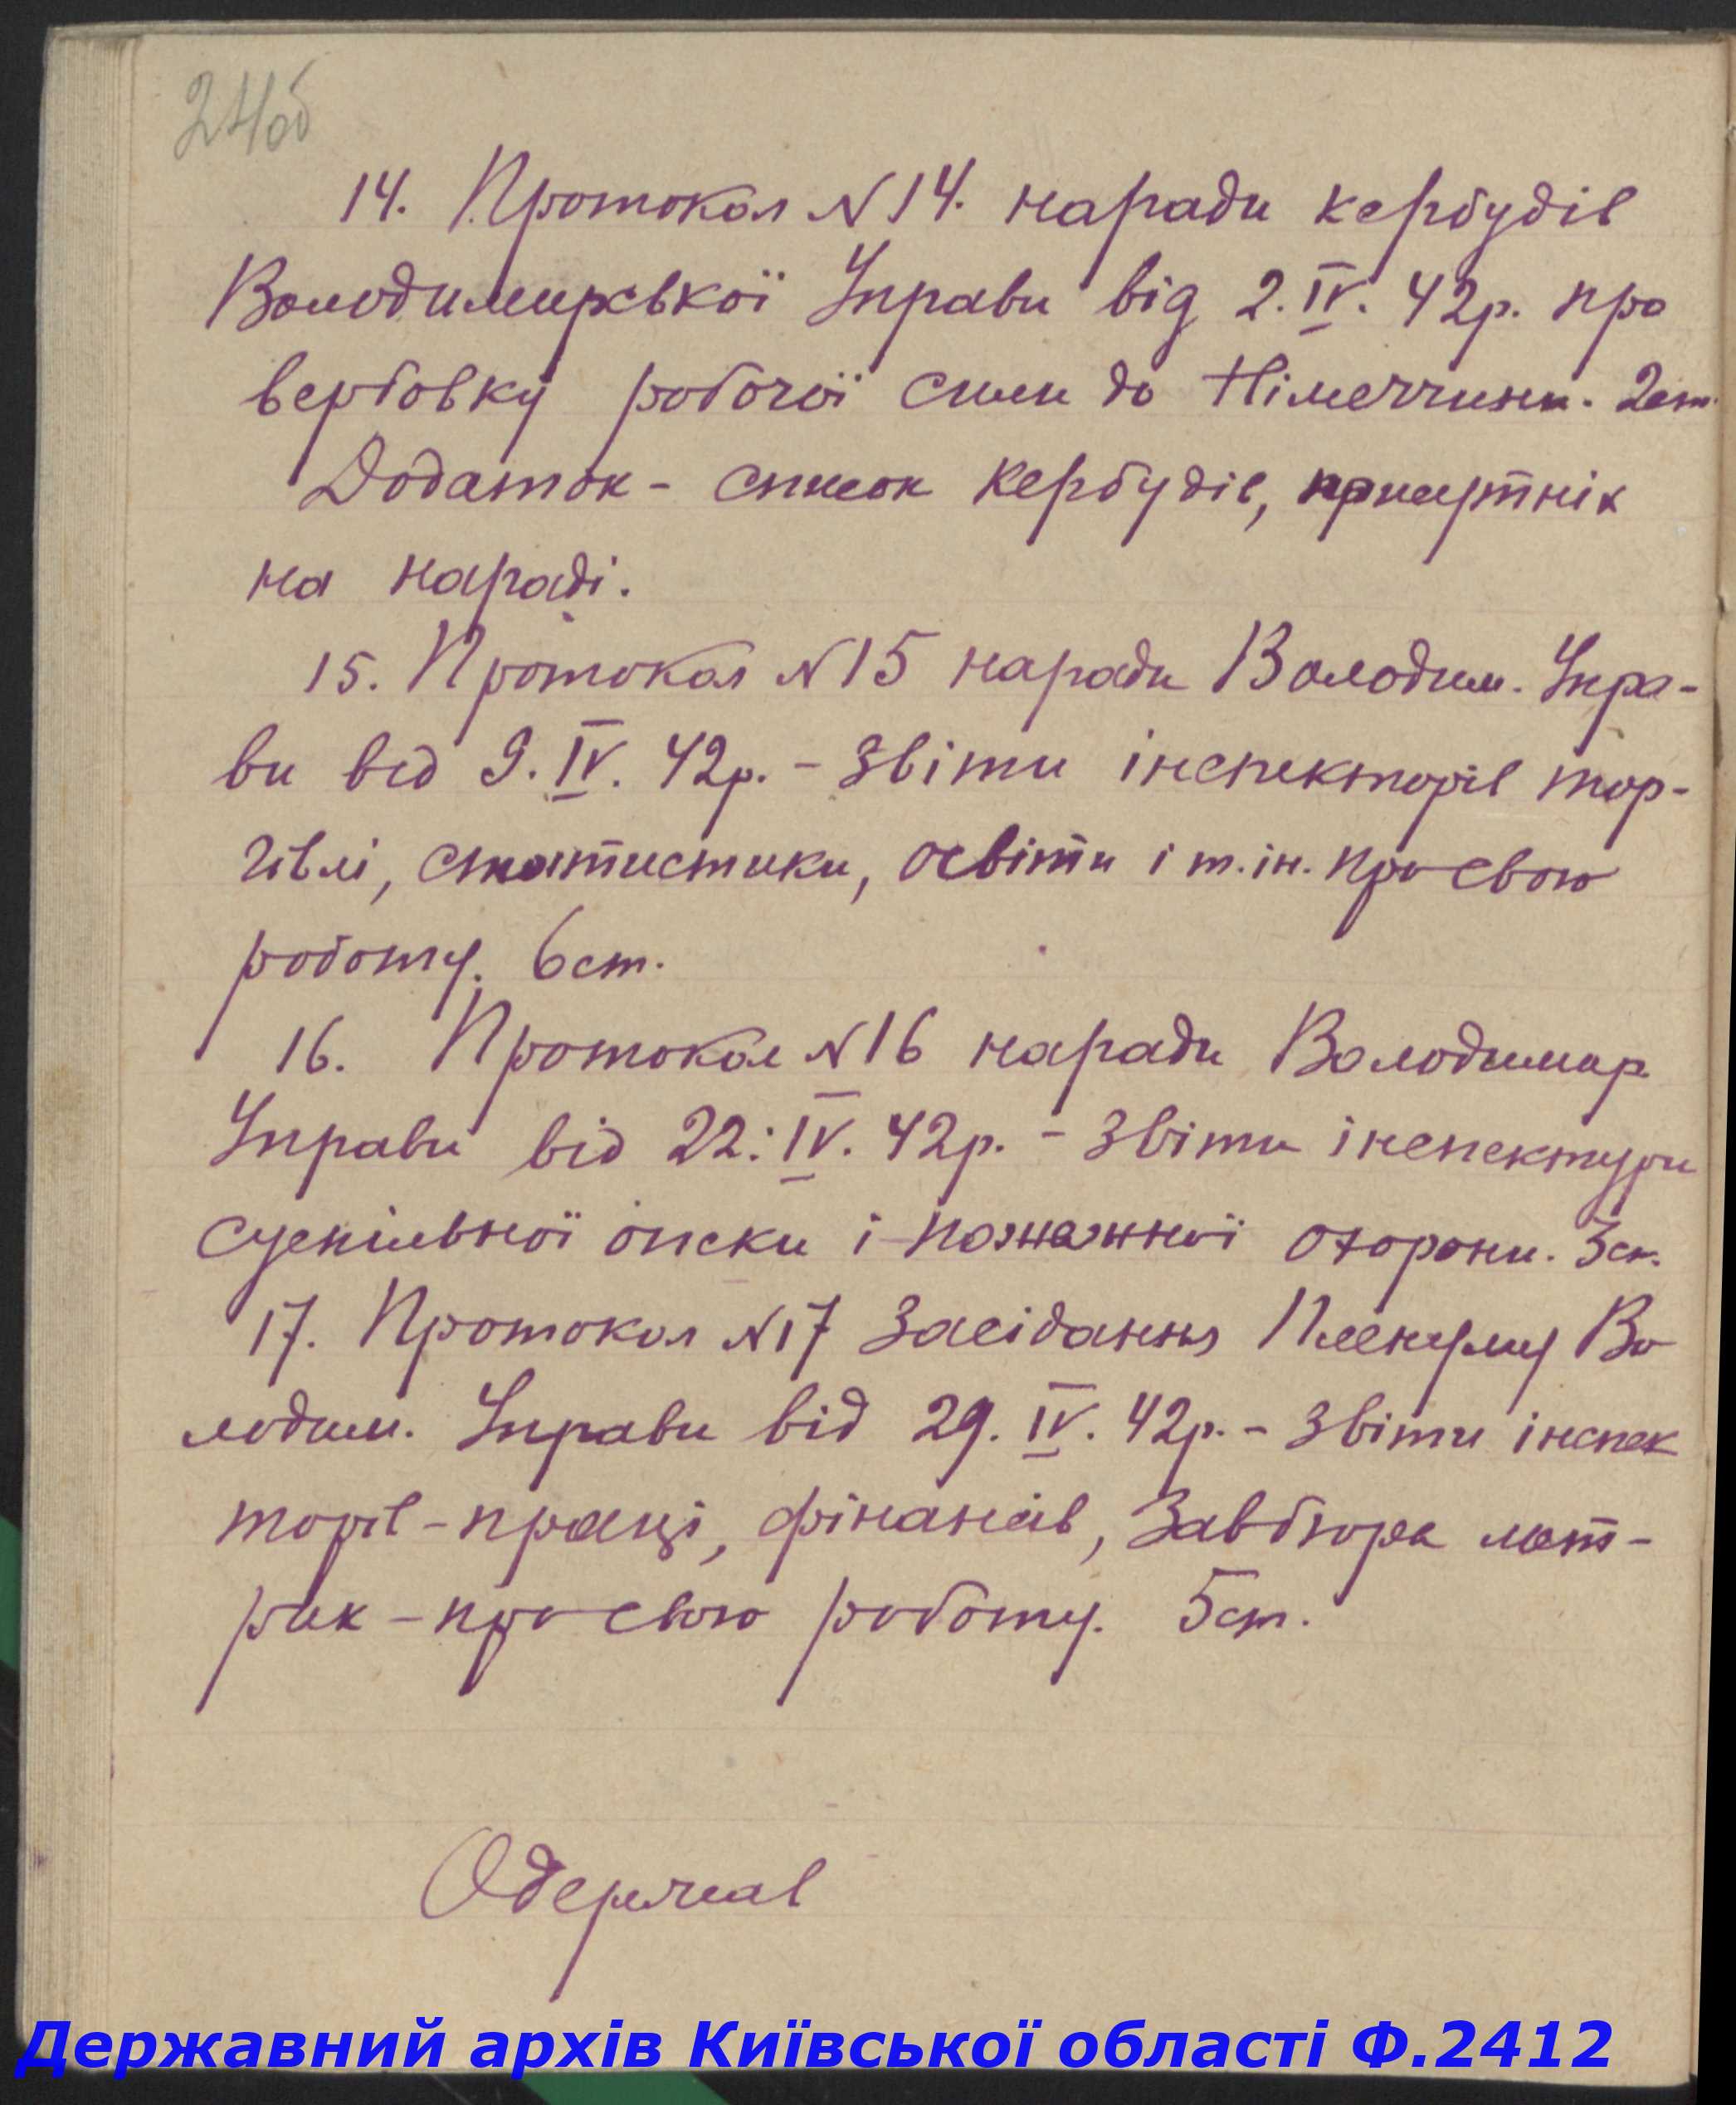 24об
14. Протокол N14. наради кербудів
Володимирської Управи від 2.IV. 42р. про
вербовку робочої сили до Німеччини. 2ст.
Додаток - список кербудів, присутніх
на нараді.
15. Протокол N15 наради Володим. Упра-
ви від 9.IV. 42р. - Звіти інспекторів тор-
гівлі, статистики, освіти і т.ін. про свою
роботу. 6ст.
16. Протокол N16 наради Володимир.
Управи від 22.IV. 42р. - Звіти інспектури
суспільної опіки і пожежної охорони. 3ст.
17. Протокол N17 Засідання Пленуму Во
лодим. Управи від 29.IV. 42р. - Звіти інспек
торів - праці, фінансів, Завбюра мет-
рик - про свою роботу. 5ст.
Одержав
Державний архів Київської області Ф.2412